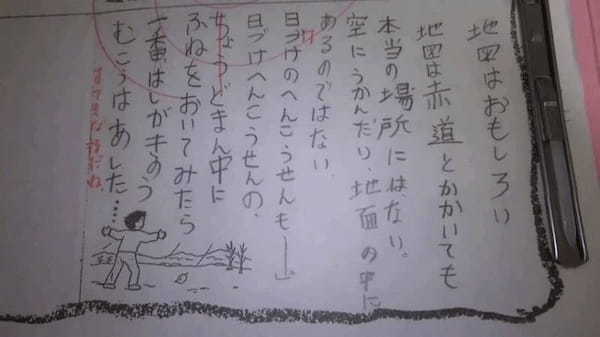 地図はおもしろい
地図は赤道とかかいても
本当の場所にはない。
空にうかんだり、地面の中に
あるのではない。
日づけのへんこうせんも――」
日づけへんこうせんの、
ちょうどまん中に
ふねをおいてみたら
一番はしがきのう
むこうはあした……
すてきな詩だね。